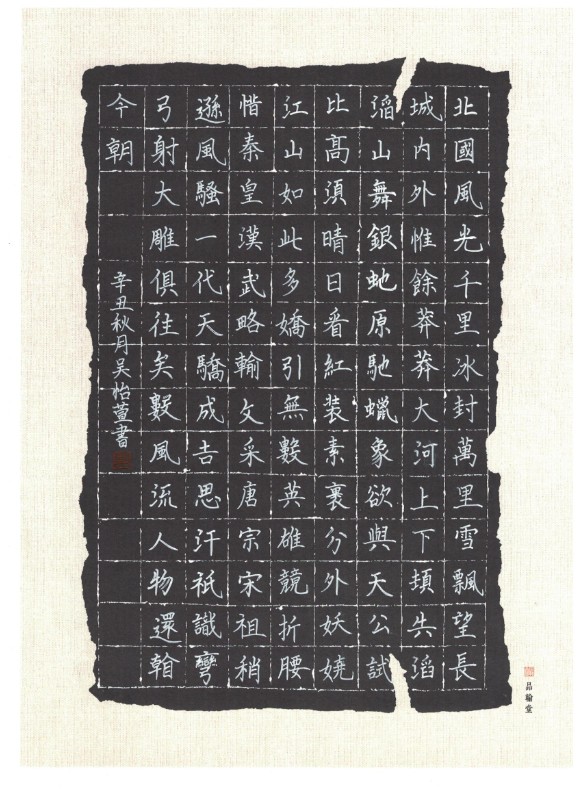 北國風光千里冰封萬里雪飄望長
城内外惟餘莽莽大河上下頓失滔
滔山舞銀虵原馳蠟象欲與天公試
比髙須晴日看紅装素裹分外妖嬈
江山如此多嬌引無數英雄競折腰
惜秦皇漢武略輸文采唐宗宋祖稍
遜風騷一代天驕成吉思汗祇識彎
弓射大雕俱往矣數風流人物還
今朝
辛丑秋月吴怡萱書
品翰堂